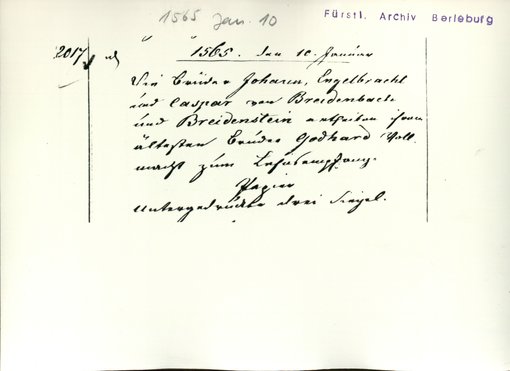 1565 Jan. 10
Fürstl. Archiv Berleburg
2017
1565. den 10. Januar
Die Brüder Johann, Engelbracht
und Caspar von Breidenbach
und Breidenstein ertheilen ihrem
ältesten Bruder Godhard Voll
macht zum Lehnsempfang.
Papier
Untergedrückte drei Siegel.